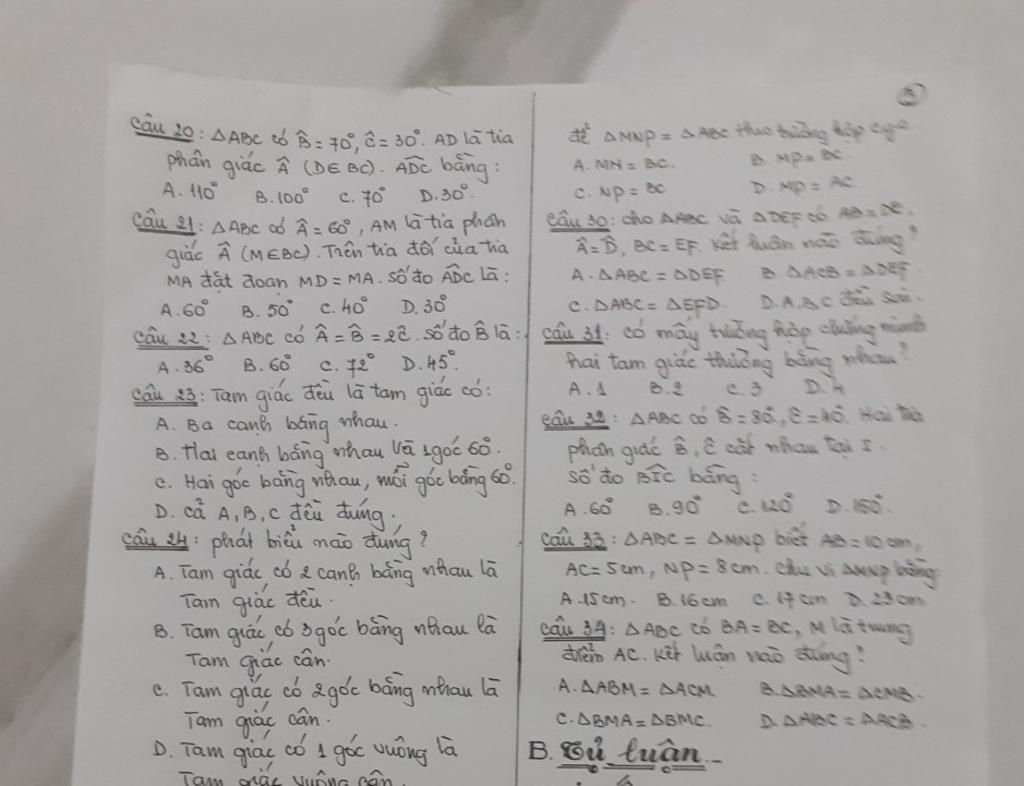 Câu 20: △ABC có B̂ = 70°, Ĉ = 30°. AD là tia
phân giác Â (D∈BC). ADC bằng:
A. 110° B. 100° C. 70° D. 30°.
Câu 21: △ABC có Â = 60°, AM là tia phân
giác Â (M∈BC). Trên tia đối của tia
MA đặt đoạn MD = MA. Số đo ADC là:
A. 60° B. 50° C. 40° D. 30°
Câu 22: △ABC có Â = B̂ = 2Ĉ. Số đo B̂ là:
A. 36° B. 60° C. 72° D. 45°.
Câu 23: Tam giác đều là tam giác có:
A. Ba cạnh bằng nhau.
B. Hai cạnh bằng nhau và 1 góc 60°.
C. Hai góc bằng nhau, mỗi góc bằng 60°.
D. Cả A, B, C đều đúng.
Câu 24: Phát biểu nào đúng?
A. Tam giác có 2 cạnh bằng nhau là
Tam giác đều.
B. Tam giác có 3 góc bằng nhau là
Tam giác cân.
C. Tam giác có 2 góc bằng nhau là
Tam giác cân.
D. Tam giác có 1 góc vuông là
Tam giác vuông cân.
để △MNP = △ABC theo trường hợp cgc
A. MN = BC. B. MP = BC.
C. NP = BC D. MP = AC
Câu 30: Cho △ABC và △DEF có AB = DE,
Â = D̂, BC = EF. Kết luận nào đúng?
A. △ABC = △DEF B. △ACB = △DEF
C. △ABC = △EFD. D. A, B, C đều sai.
Câu 31: Có mấy trường hợp chứng minh
hai tam giác thường bằng nhau?
A. 1 B. 2 C. 3 D. 4
Câu 32: △ABC có B̂ = 80°, Ĉ = 40°. Hai tia
phân giác B̂, Ĉ cắt nhau tại I.
Số đo BIC bằng:
A. 60° B. 90° C. 120° D. 150°
Câu 33: △ABC = △MNP biết AB = 10 cm,
AC = 5 cm, NP = 8 cm. Chu vi △MNP bằng
A. 15 cm. B. 16 cm C. 17 cm D. 23 cm
Câu 34: △ABC có BA = BC, M là trung
điểm AC. Kết luận nào đúng?
A. △ABM = △ACM B. △BMA = △CMB.
C. △BMA = △BMC. D. △ABC = △ACB.
B. Tự luận